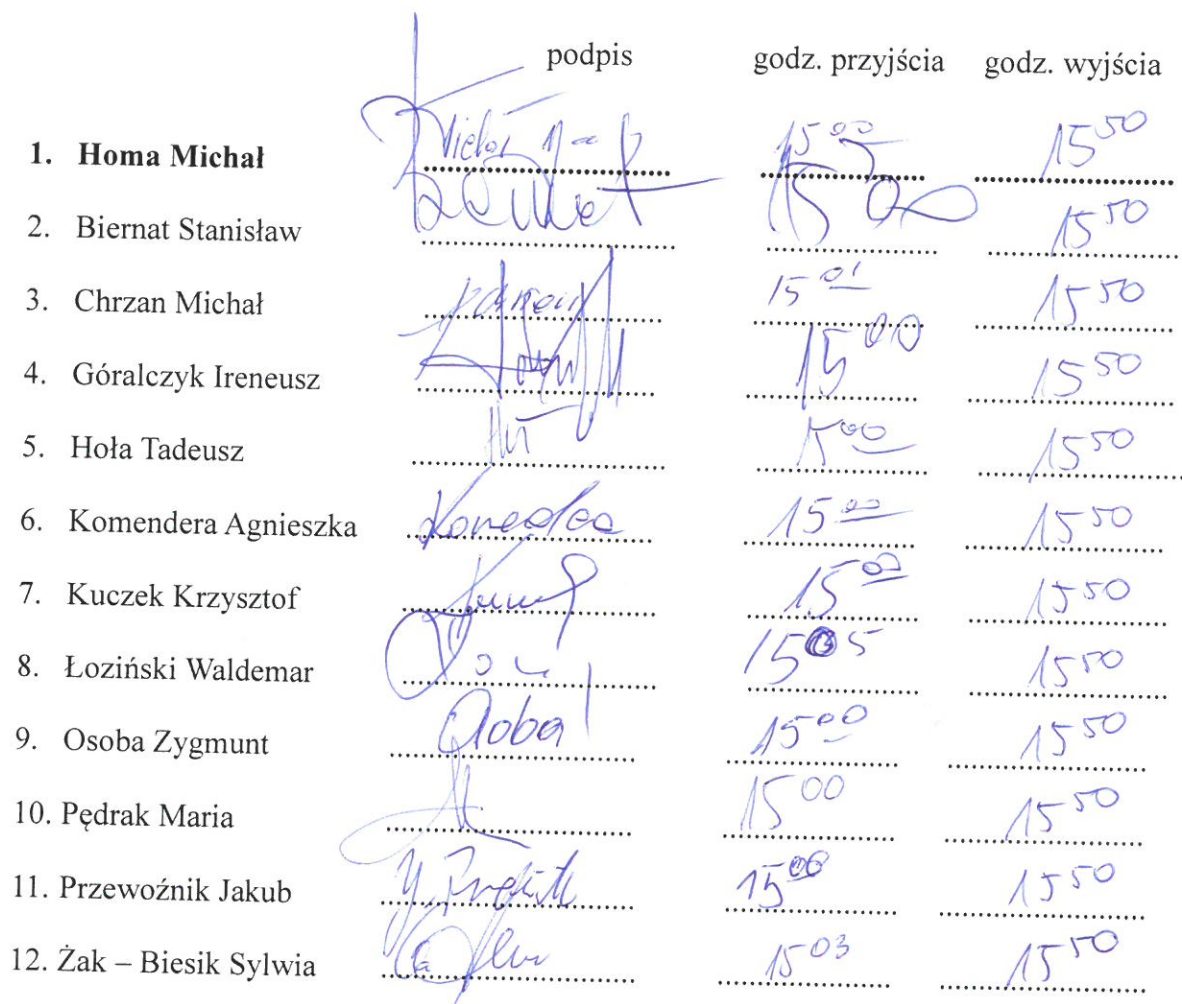 podpis godz. przyjścia godz. wyjścia
1. Homa Michał 15 00 15 50
2. Biernat Stanisław 15 00 15 50
3. Chrzan Michał 15 01 15 50
4. Góralczyk Ireneusz 15 00 15 50
5. Hoła Tadeusz 15 00 15 50
6. Komendera Agnieszka 15 00 15 50
7. Kuczek Krzysztof 15 50
8. Łoziński Waldemar 15 05 15 50
9. Osoba Zygmunt 15 00 15 50
10. Pędrak Maria 15 00 15 50
11. Przewoźnik Jakub 15 50
12. Żak – Biesik Sylwia 15 03 15 50